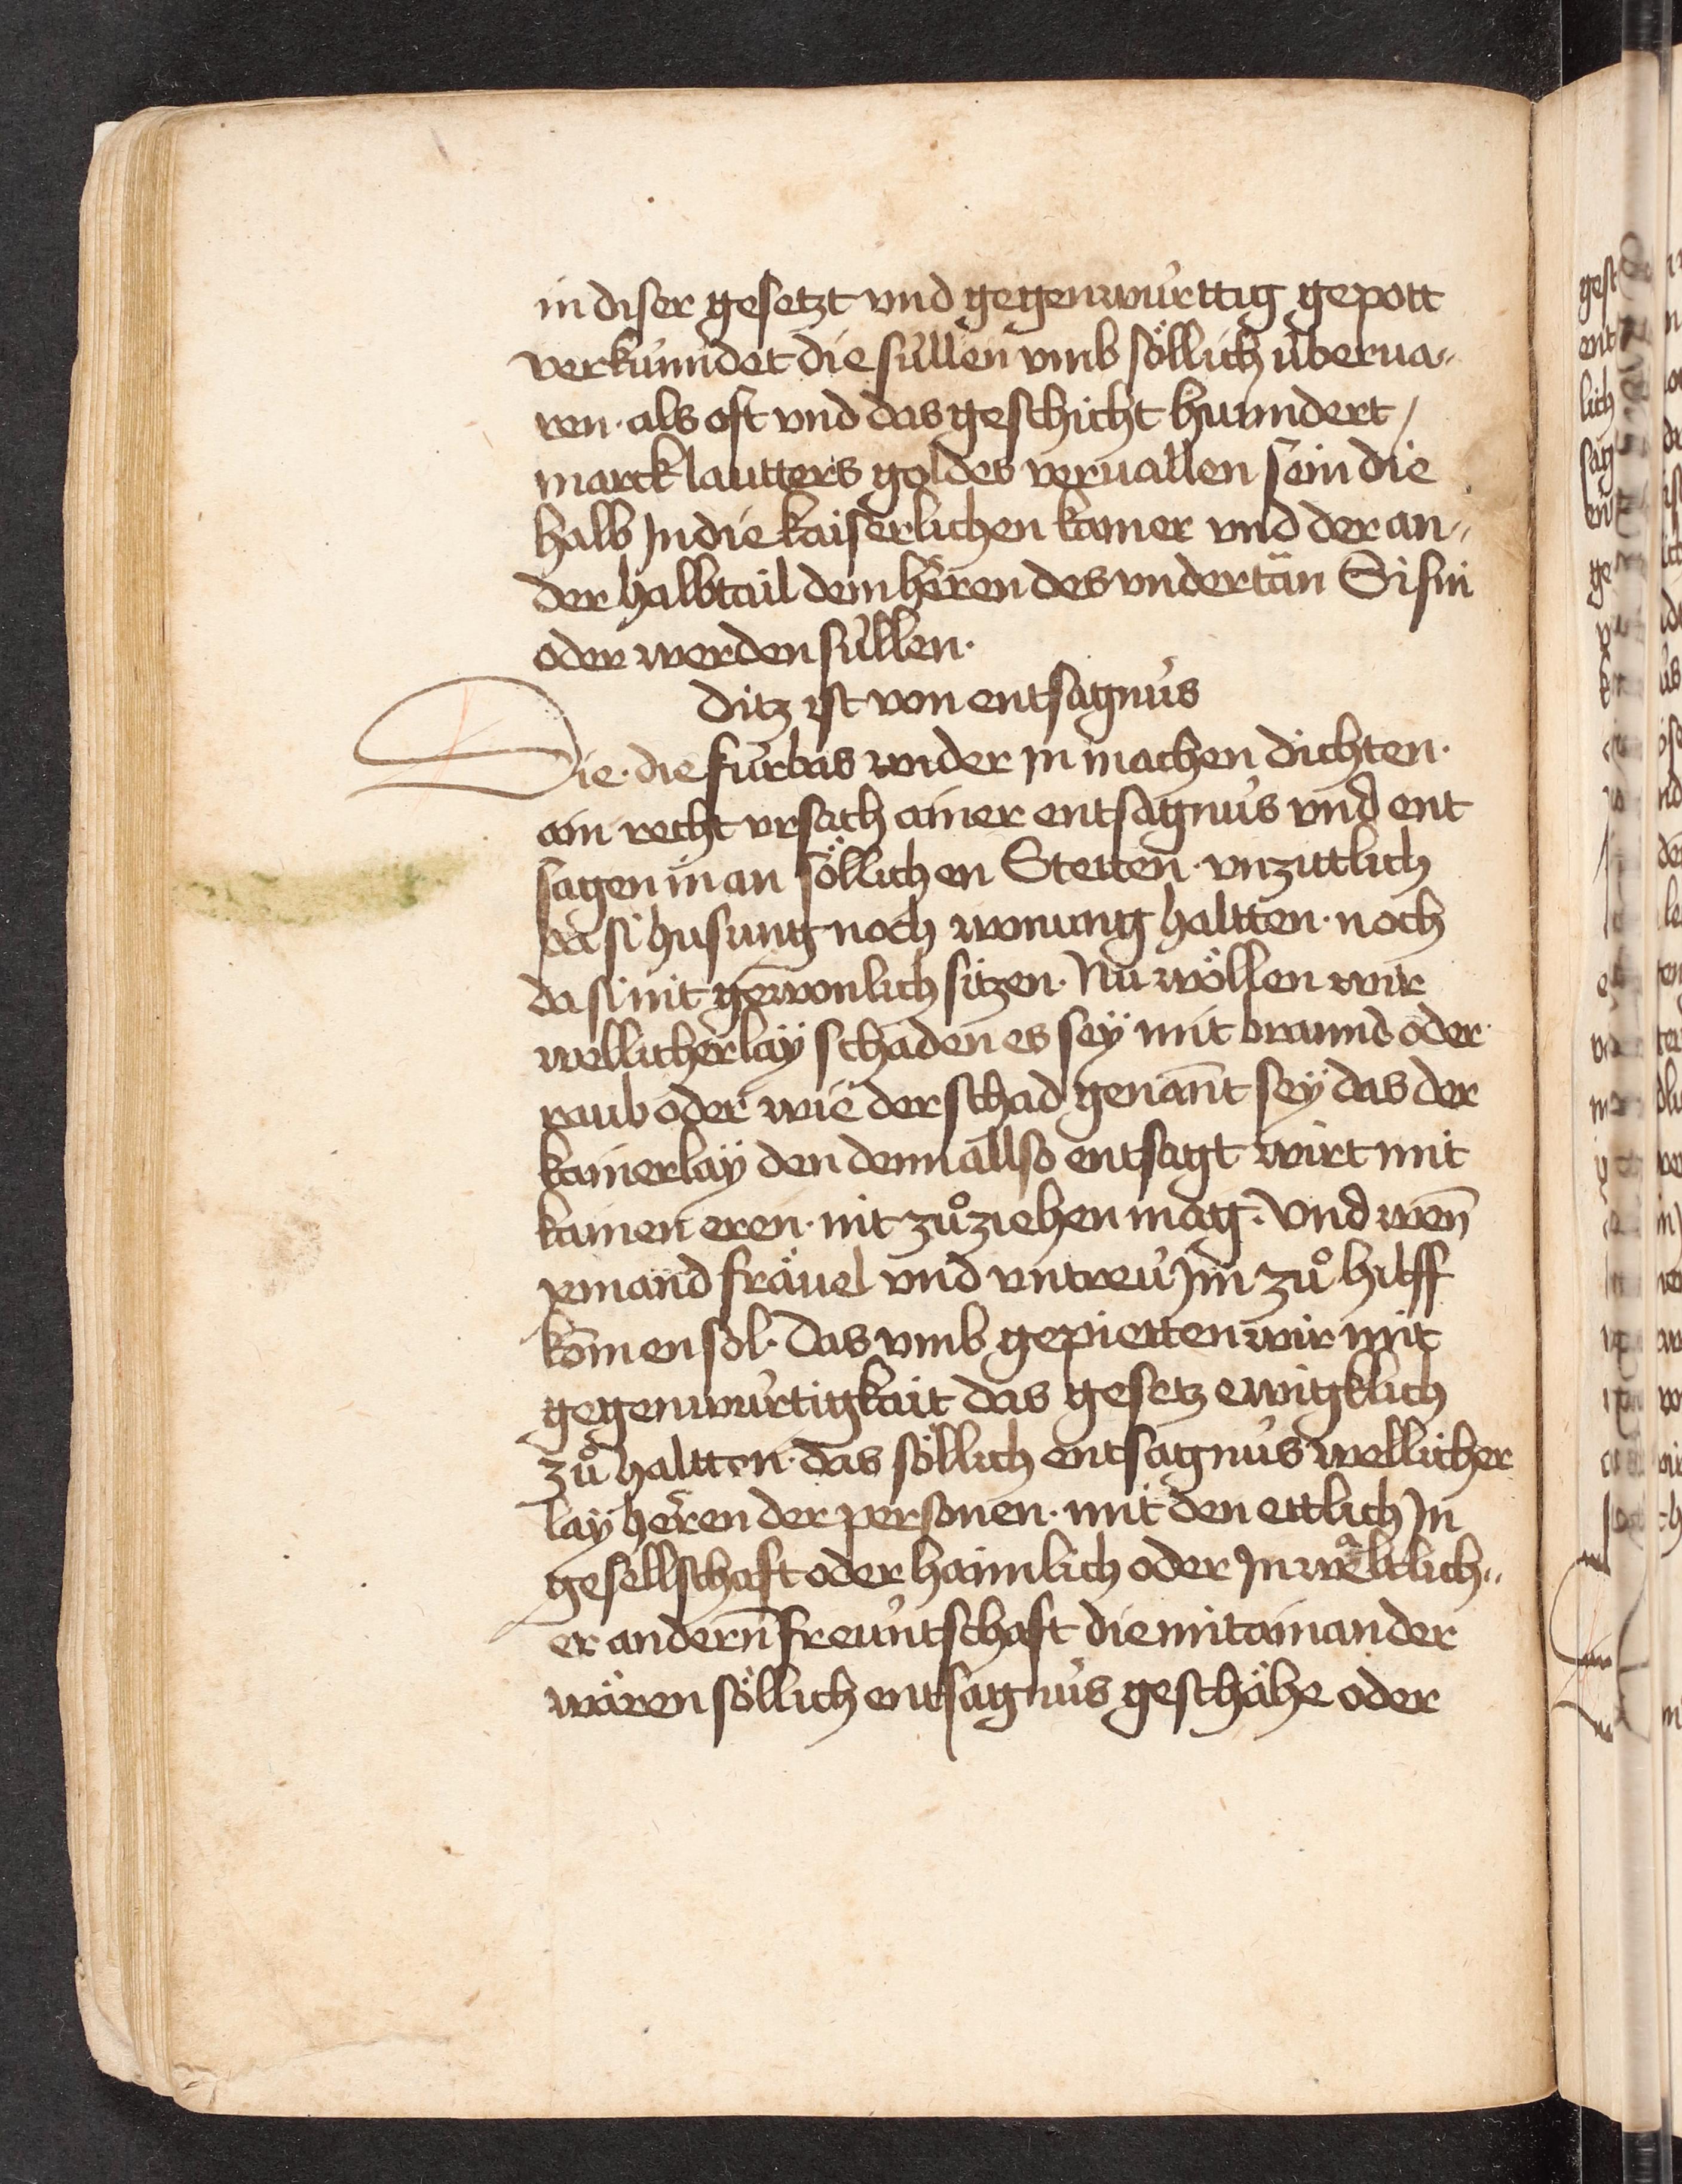 in diser gesetzt vnd gegenwürttig gepott
verkünndet die süllen vmb söllich überua„
ren · als oft vnd das geschicht hunndert /
marck lautters goldes veruallen sein die
halb Jn die kaiserlichen kamer vnd der an„
der halbtail dem heren des vndertän Si sin
oder werden süllen ·
ditz ist von entsagnüs
Die · die fürbas wider jn machen dichten ·
ain recht vrsach ainer entsagnüs vnd ent
sagen in an söllichen Stetten · vnzittlich
da si husung noch wonung haltten · noch
da si nit gewonlich sitzen · Nu wöllen wir
wellicherlaÿ schaden es seÿ mit brannd oder
raub oder wie der schad genant seÿ das der
kainerlaÿ den denn allso entsagt wirt mit
kainen eren · nit zůziehen mag · Vnd wen̄
yemand fräuel vnd vntreü Jm zů hilff
kom̄en sol · Das vmb gepietten wir mit
gegenwürtigkait das gesetz ewigklich
zů haltten · das söllich entsagnüs wellicher
laÿ heren der personen · mit den ettlich Jn
gesellschaft oder haimlich oder Jn wältlich„
er andern̄ freüntschaft die mitainander
wären söllich entsagnüs geschähe oder